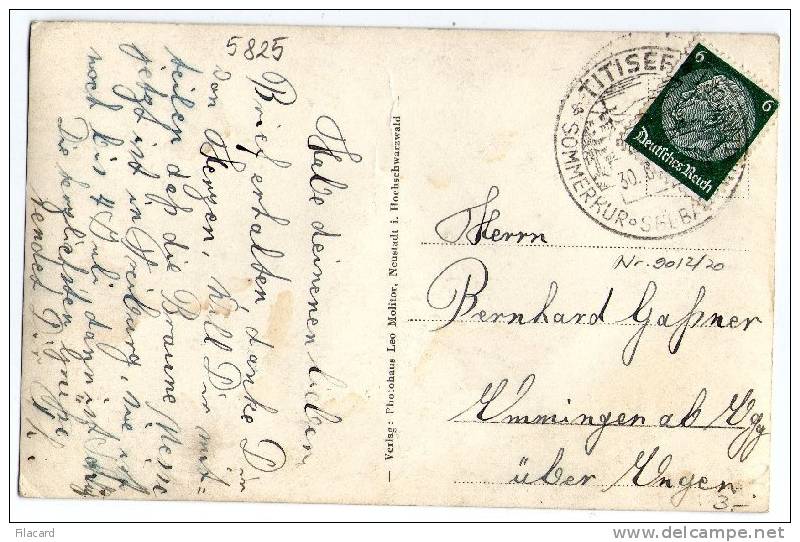 5825
Habe deinenen lieben
Brief erhalten, danke Dir
von Herzen, will Dir mit=
teilen daß die Braune Messe
jetzt ist in Freiburg, sie ist
noch bis 4 Juli, dann ist
Die herzlichsten Grüße
sendet Dir
Verlag: Photohaus Leo Molitor, Neustadt i. Hochschwarzwald
TITISEE
SOMMERKUR
30.
6 6
Deutsches Reich
Herrn
Nr. 9012/20
Bernhard Gaßner
Emmingen ab Egg
über Engen
3.-
Filacard
delcampe.net